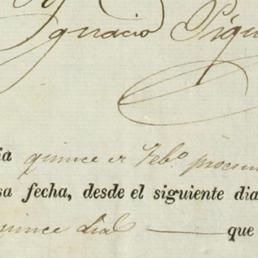 Ignacio
ia quince de Feb.º
sa fecha, desde el siguiente dia
quince dias — que